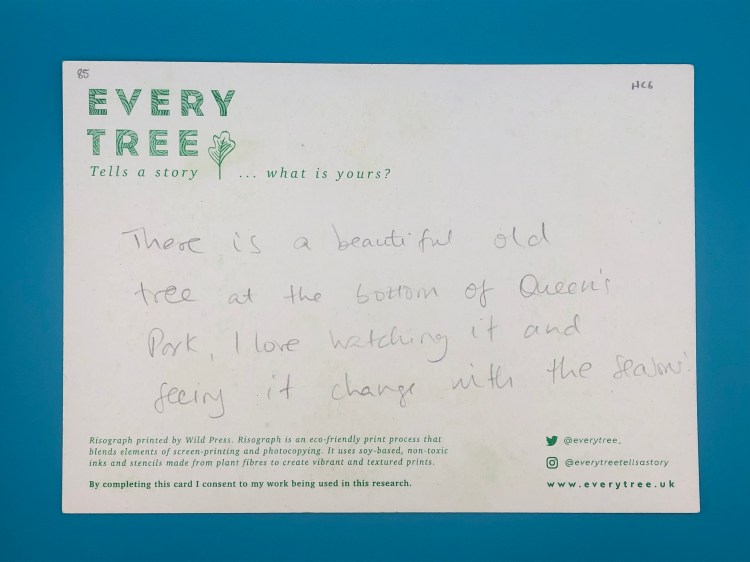 85
HC6
EVERY
TREE
Tells a story ... what is yours?
There is a beautiful old
tree at the bottom of Queen's
Park, I love watching it and
seeing it change with the seasons
Risograph printed by Wild Press. Risograph is an eco-friendly print process that
blends elements of screen-printing and photocopying. It uses soy-based, non-toxic
inks and stencils made from plant fibres to create vibrant and textured prints.
By completing this card I consent to my work being used in this research.
@everytree_
@everytreetellsastory
www.everytree.uk